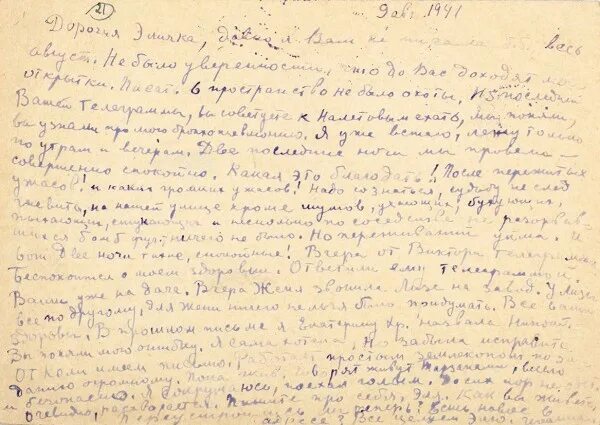 (21) 9 авг. 1941
Дорогая Эличка, давно я Вам не писала, весь
август. Не было уверенности, что до Вас доходят мои
открытки. Писать в пространство не было охоты. Из последней
Вашей телеграммы, вы советуете к Налетовым ехать, мы поняли,
вы узнали про мою бронхопневмонию. Я уже встаю, лежу только
по утрам и вечерам. Две последние ночи мы провели
совершенно спокойно. Какая это благодать! После пережитых
ужасов! и каких громких ужасов! Надо сознаться, судьбу не след
гневить, на нашей улице кроме шумов, ухающих, бухающих,
пыхающих, стукающих и несколько по соседству не разорвав
шихся бомб ничего не было. Но переживаний уйма. И
вот две ночи такие, спокойные! Вчера от Виктора телеграмма
беспокоится о моем здоровьи. Ответили ему телеграммой.
Ваши уже на даче. Вчера Женя звонила Лизе на завод. У Лизы
все по другому, для Жени ничего нельзя было придумать. Все ваши
здоровы. В прошлом письме я Екатерину Хр. назвала
Вы поняли мою ошибку. Я сама хотела, но забыла исправить
От Коли имеем письмо. Работает простым землекопом,
данию огромному. Пока жив, говорят живут
безопасно. поехал голым. До сих пор не
очевидно, Пишите про себя, Эля. Как вы живете
и теперь? Есть новое в
адресе? Все целуем Элю.